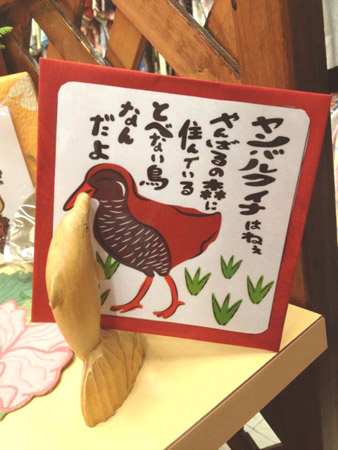 ヤンバルクイナはねぇ
やんばるの森に
住んでいる
とべない鳥
なん
だよ